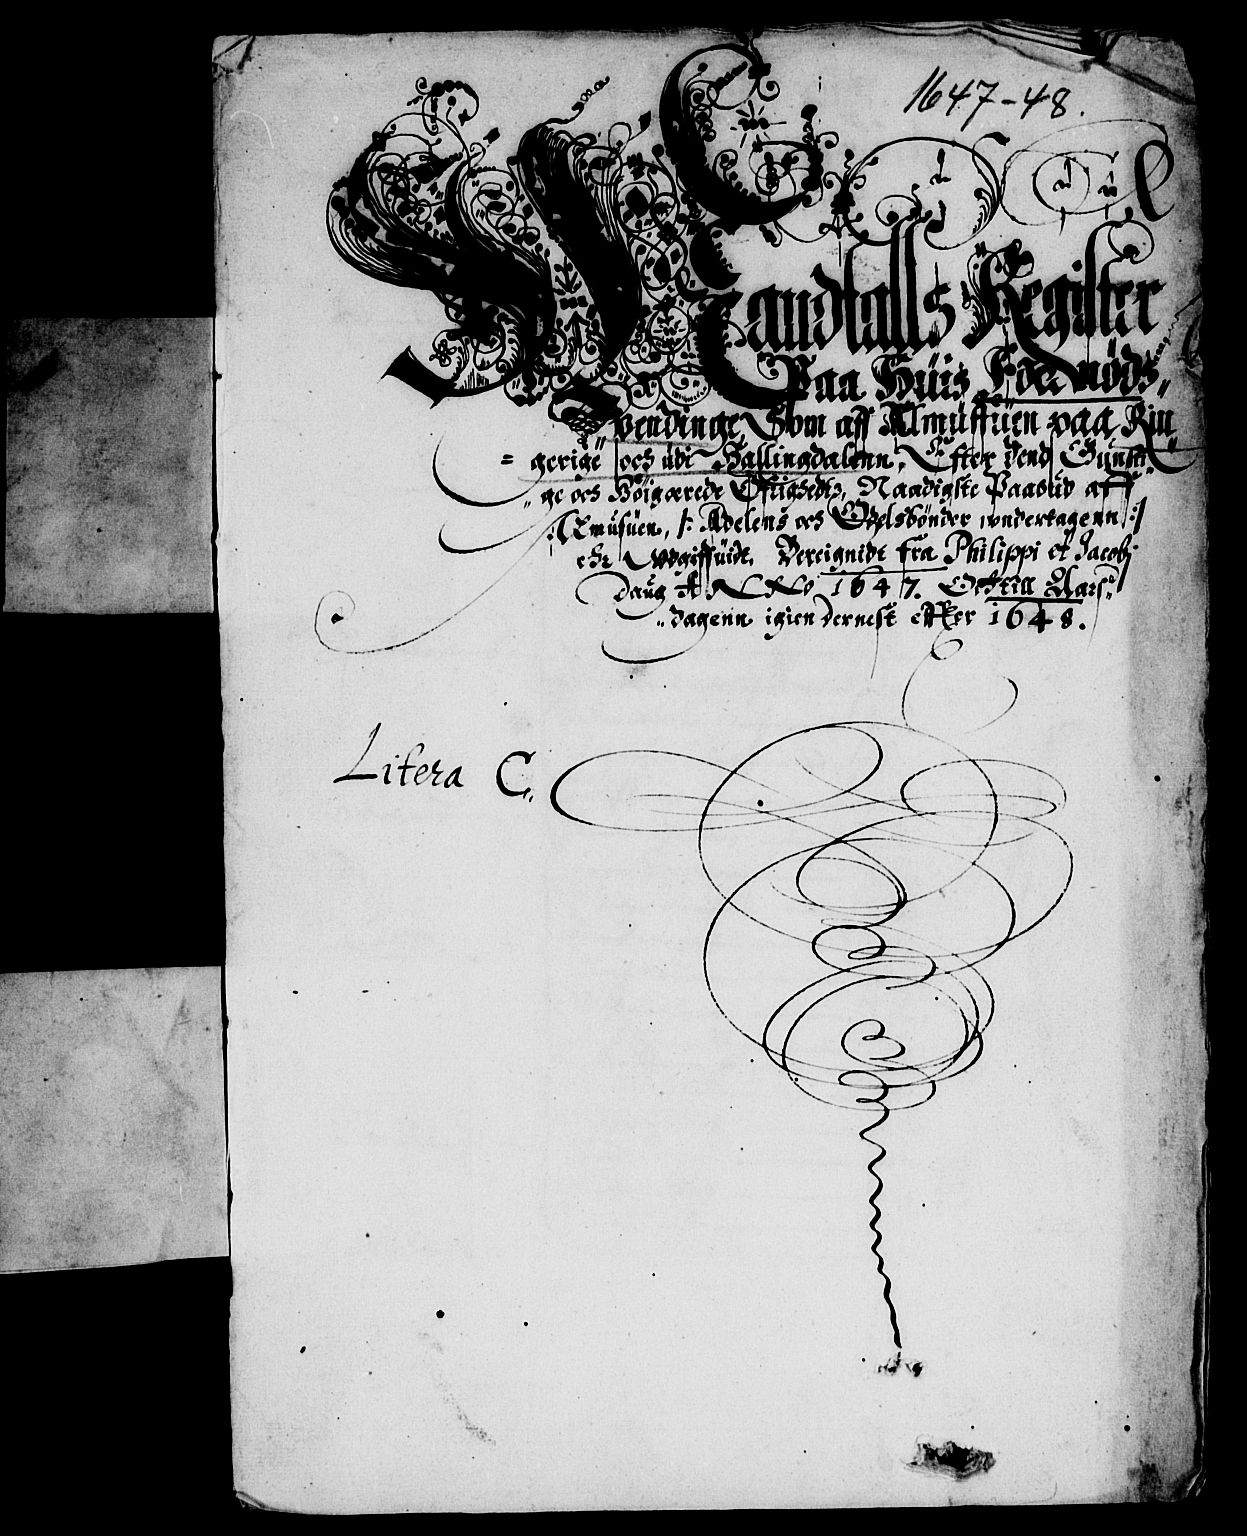 1647-48.
Mandtalls Register
Paa Huis Fornøds„
pendinge Som aff Almuffuen paa Rin„
„gerige och udi Hallingdalenn, Efter Dend Gunsti„
„ge och Høigærede Øfrigheds, Naadigste Paabud aff
Almufuen, /: Adelens och Odelsbønder undertagenn :/
ehr Udgiffuidt, Bereignidt fra Philippi et Jacobj
Daug ANNO 1647. Och till Aars„
„dagenn igien dernest effter 1648.
Litera C.